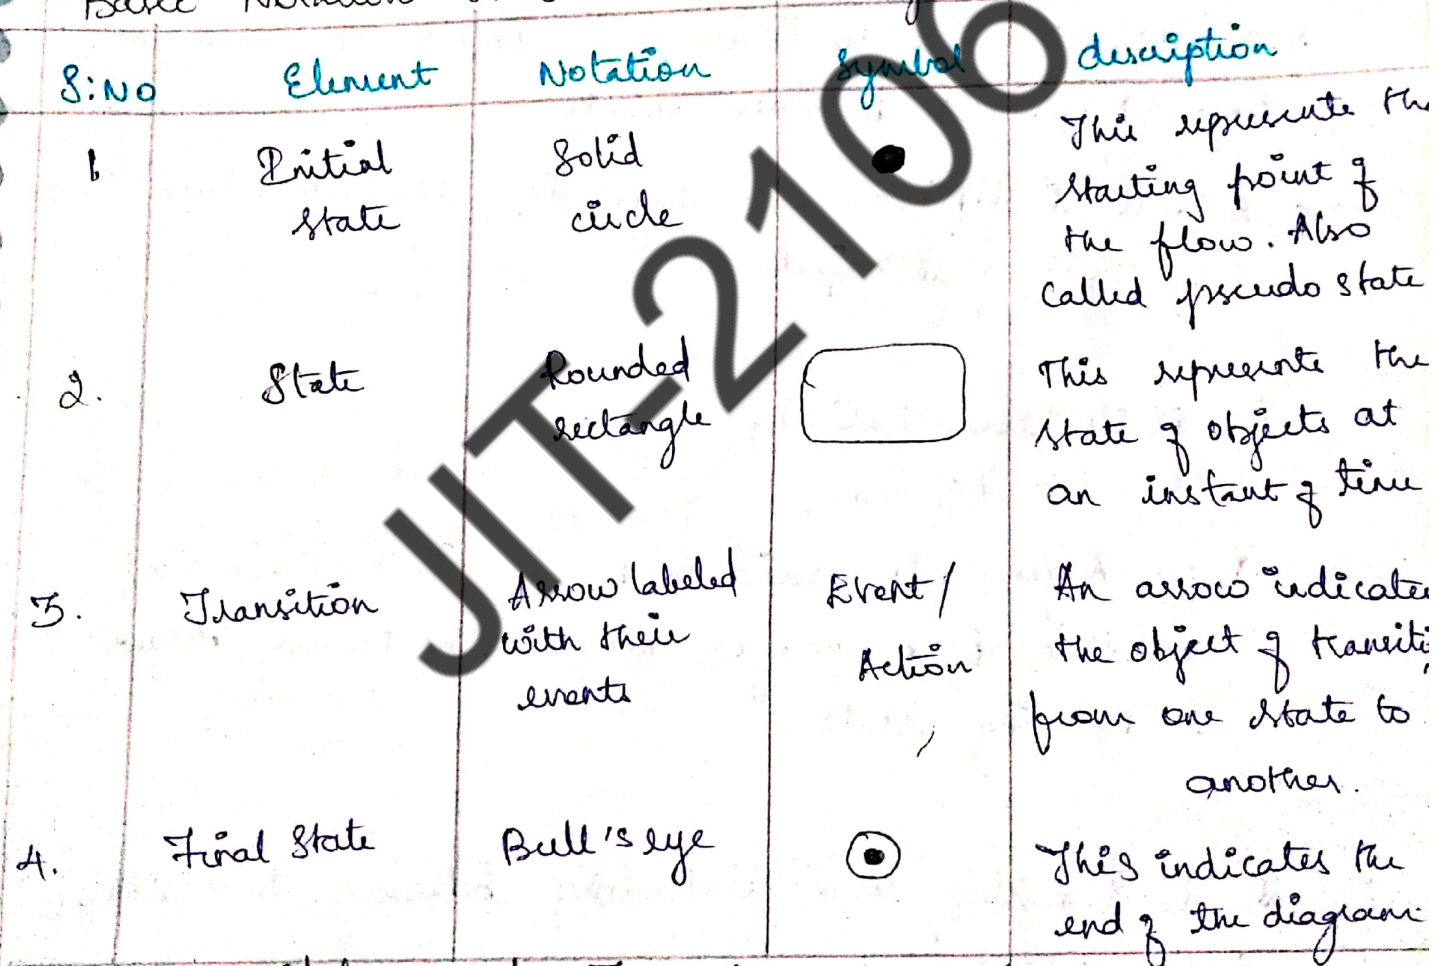 Basic Notation
S:No Element Notation Symbol description
1 Initial state Solid circle This represents the starting point of the flow. Also called pseudo state
2. State Rounded rectangle This represents the state of objects at an instant of time
3. Transition Arrow labeled with their events Event / Action An arrow indicates the object of transiti from one state to another.
4. Final State Bull's eye This indicates the end of the diagram.
JIT-2106